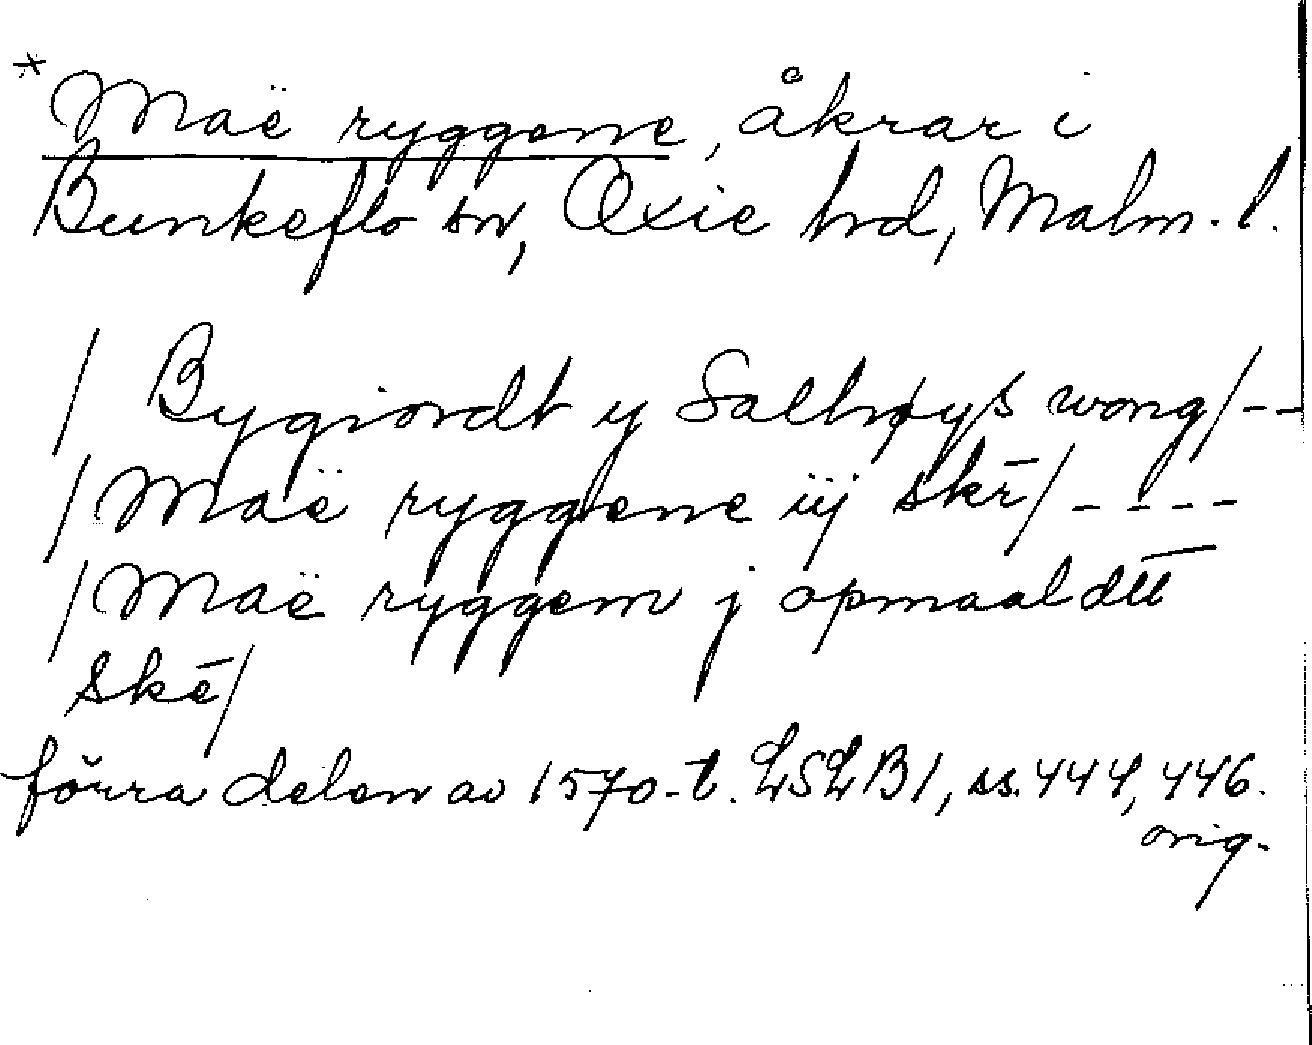 * Maë ryggene, åkrar i
Bunkeflo sn, Oxie hd, Malm. l.
/ Bygiordt y Salthøys wong/--
/Maë ryggene iij skē/----
/Maë ryggem j opmaal dtt
Skē/
förra delen av 1570-t. LSLB1, ss. 444, 446.
orig.